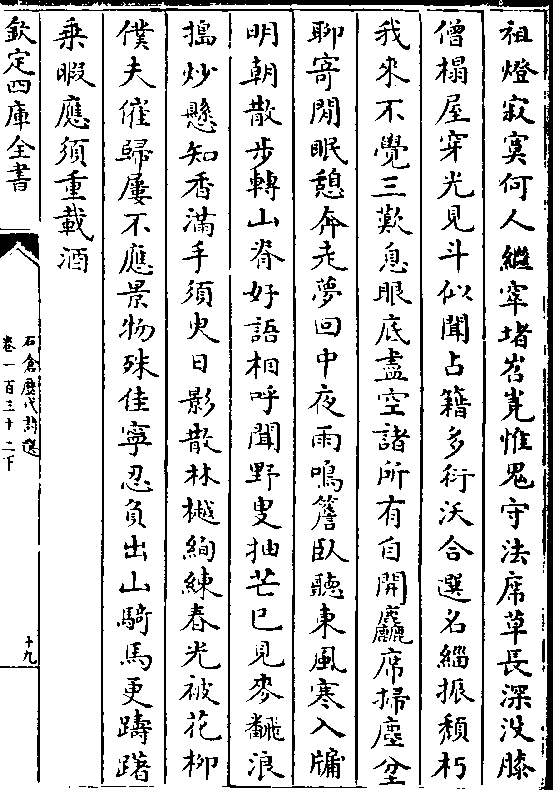 祖燈寂寞何人繼窣堵岧嶤惟鬼守法席草長深沒膝
僧榻屋穿光見斗似聞占籍多衍沃合選名緇振頽朽
我來不覺三歎息眼底盡空諸所有自開麤席掃塵坌
聊寄閒眠憩奔走夢回中夜雨鳴簷臥聽東風寒入牖
明朝散步轉山脊好語相呼聞野叟抽芒已見麥翻浪
搗炒懸知香滿手須臾日影散林樾絢練春光被花柳
僕夫催歸屢不應景物殊佳寧忍負出山騎馬更躊躇
乘暇應須重載酒
欽定四庫全書
石倉歷代詩選
卷一百三十二下
十九